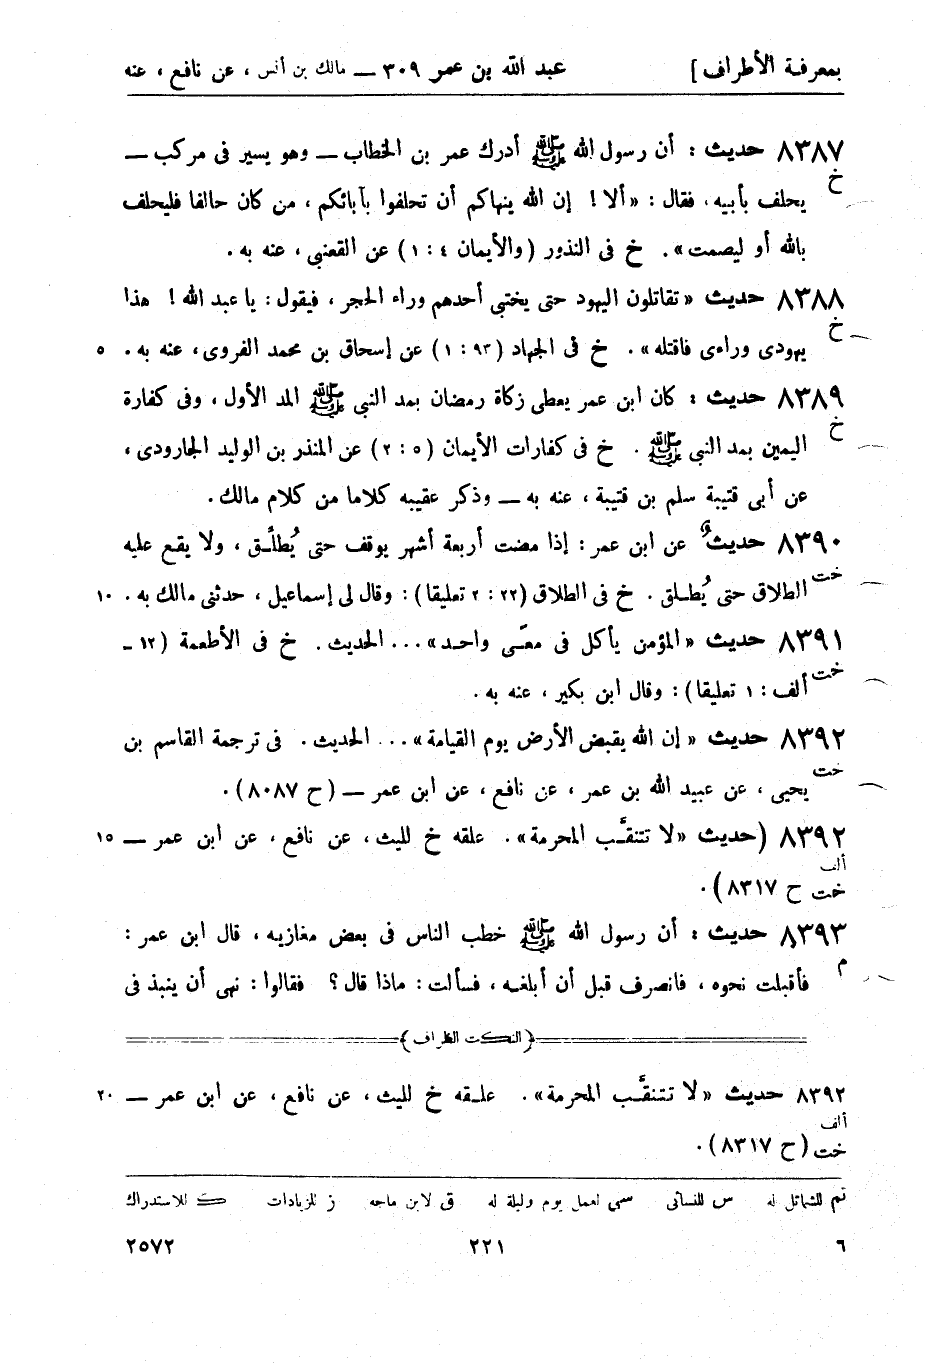 بمعرفة الأطراف] عبد الله بن عمر ٣٠٩ ــ مالك بن أنس ، عن نافع ، عنه
٨٣٨٧ حديث : أن رسول الله ﷺ أدرك عمر بن الخطاب ــ وهو يسير فى مركب ــ
خ
يحلف بأبيه ، فقال : «ألا ! إن الله ينهاكم أن تحلفوا بآبائكم ، من كان حالفا فليحلف
بالله أو ليصمت» . خ فى النذور (والأيمان ٤ : ١) عن القعنبي ، عنه به .
٨٣٨٨ حديث «تقاتلون اليهود حتى يختبى أحدهم وراء الحجر ، فيقول : يا عبد الله ! هذا
خ
يهودى وراءى فاقتله» . خ فى الجهاد (٩٣ : ١) عن إسحاق بن محمد الفروى ، عنه به . ٥
٨٣٨٩ حديث : كان ابن عمر يعطى زكاة رمضان بمد النبي ﷺ المد الأول ، وفى كفارة
خ
اليمين بمد النبى ﷺ . خ فى كفارات الأيمان (٥ : ٢) عن المنذر بن الوليد الجارودى ،
عن أبى قتيبة سلم بن قتيبة ، عنه به ــ وذكر عقيبه كلاما من كلام مالك .
٨٣٩٠ حديثٌ عن ابن عمر : إذا مضت أربعة أشهر يوقف حتى يُطلِّق ، ولا يقع عليه
خت
الطلاق حتى يُطلق . خ فى الطلاق (٢٢ : ٢ تعليقا) : وقال لى إسماعيل ، حدثنى مالك به . ١٠
٨٣٩١ حديث «المؤمن يأكل فى معًى واحد» ... الحديث . خ فى الأطعمة (١٢ ـ
خت
ألف : ١ تعليقا) : وقال ابن بكير ، عنه به .
٨٣٩٢ حديث «إن الله يقبض الأرض يوم القيامة» ... الحديث . فى ترجمة القاسم بن
خت
يحيى ، عن عبيد الله بن عمر ، عن نافع ، عن ابن عمر ــ (ح ٨٠٨٧) .
٨٣٩٢ (حديث «لا تتنقَّب المحرمة» . علقه خ لليث ، عن نافع ، عن ابن عمر ــ ١٥
ألف
خت ح ٨٣١٧) .
٨٣٩٣ حديث : أن رسول الله ﷺ خطب الناس فى بعض مغازيه ، قال ابن عمر :
م
فأقبلت نحوه ، فانصرف قبل أن أبلغه ، فسألت : ماذا قال ؟ فقالوا : نهى أن ينبذ فى
{النكت الظراف}
٨٣٩٢ حديث «لا تتنقَّب المحرمة» . علقه خ لليث ، عن نافع ، عن ابن عمر ــ ٢٠
ألف
خت (ح ٨٣١٧) .
تم للشمائل له س للنسائى سى لعمل يوم وليلة له ق لابن ماجه ز للزيادات ك للاستدراك
٦ ٢٢١ ٢٥٧٢